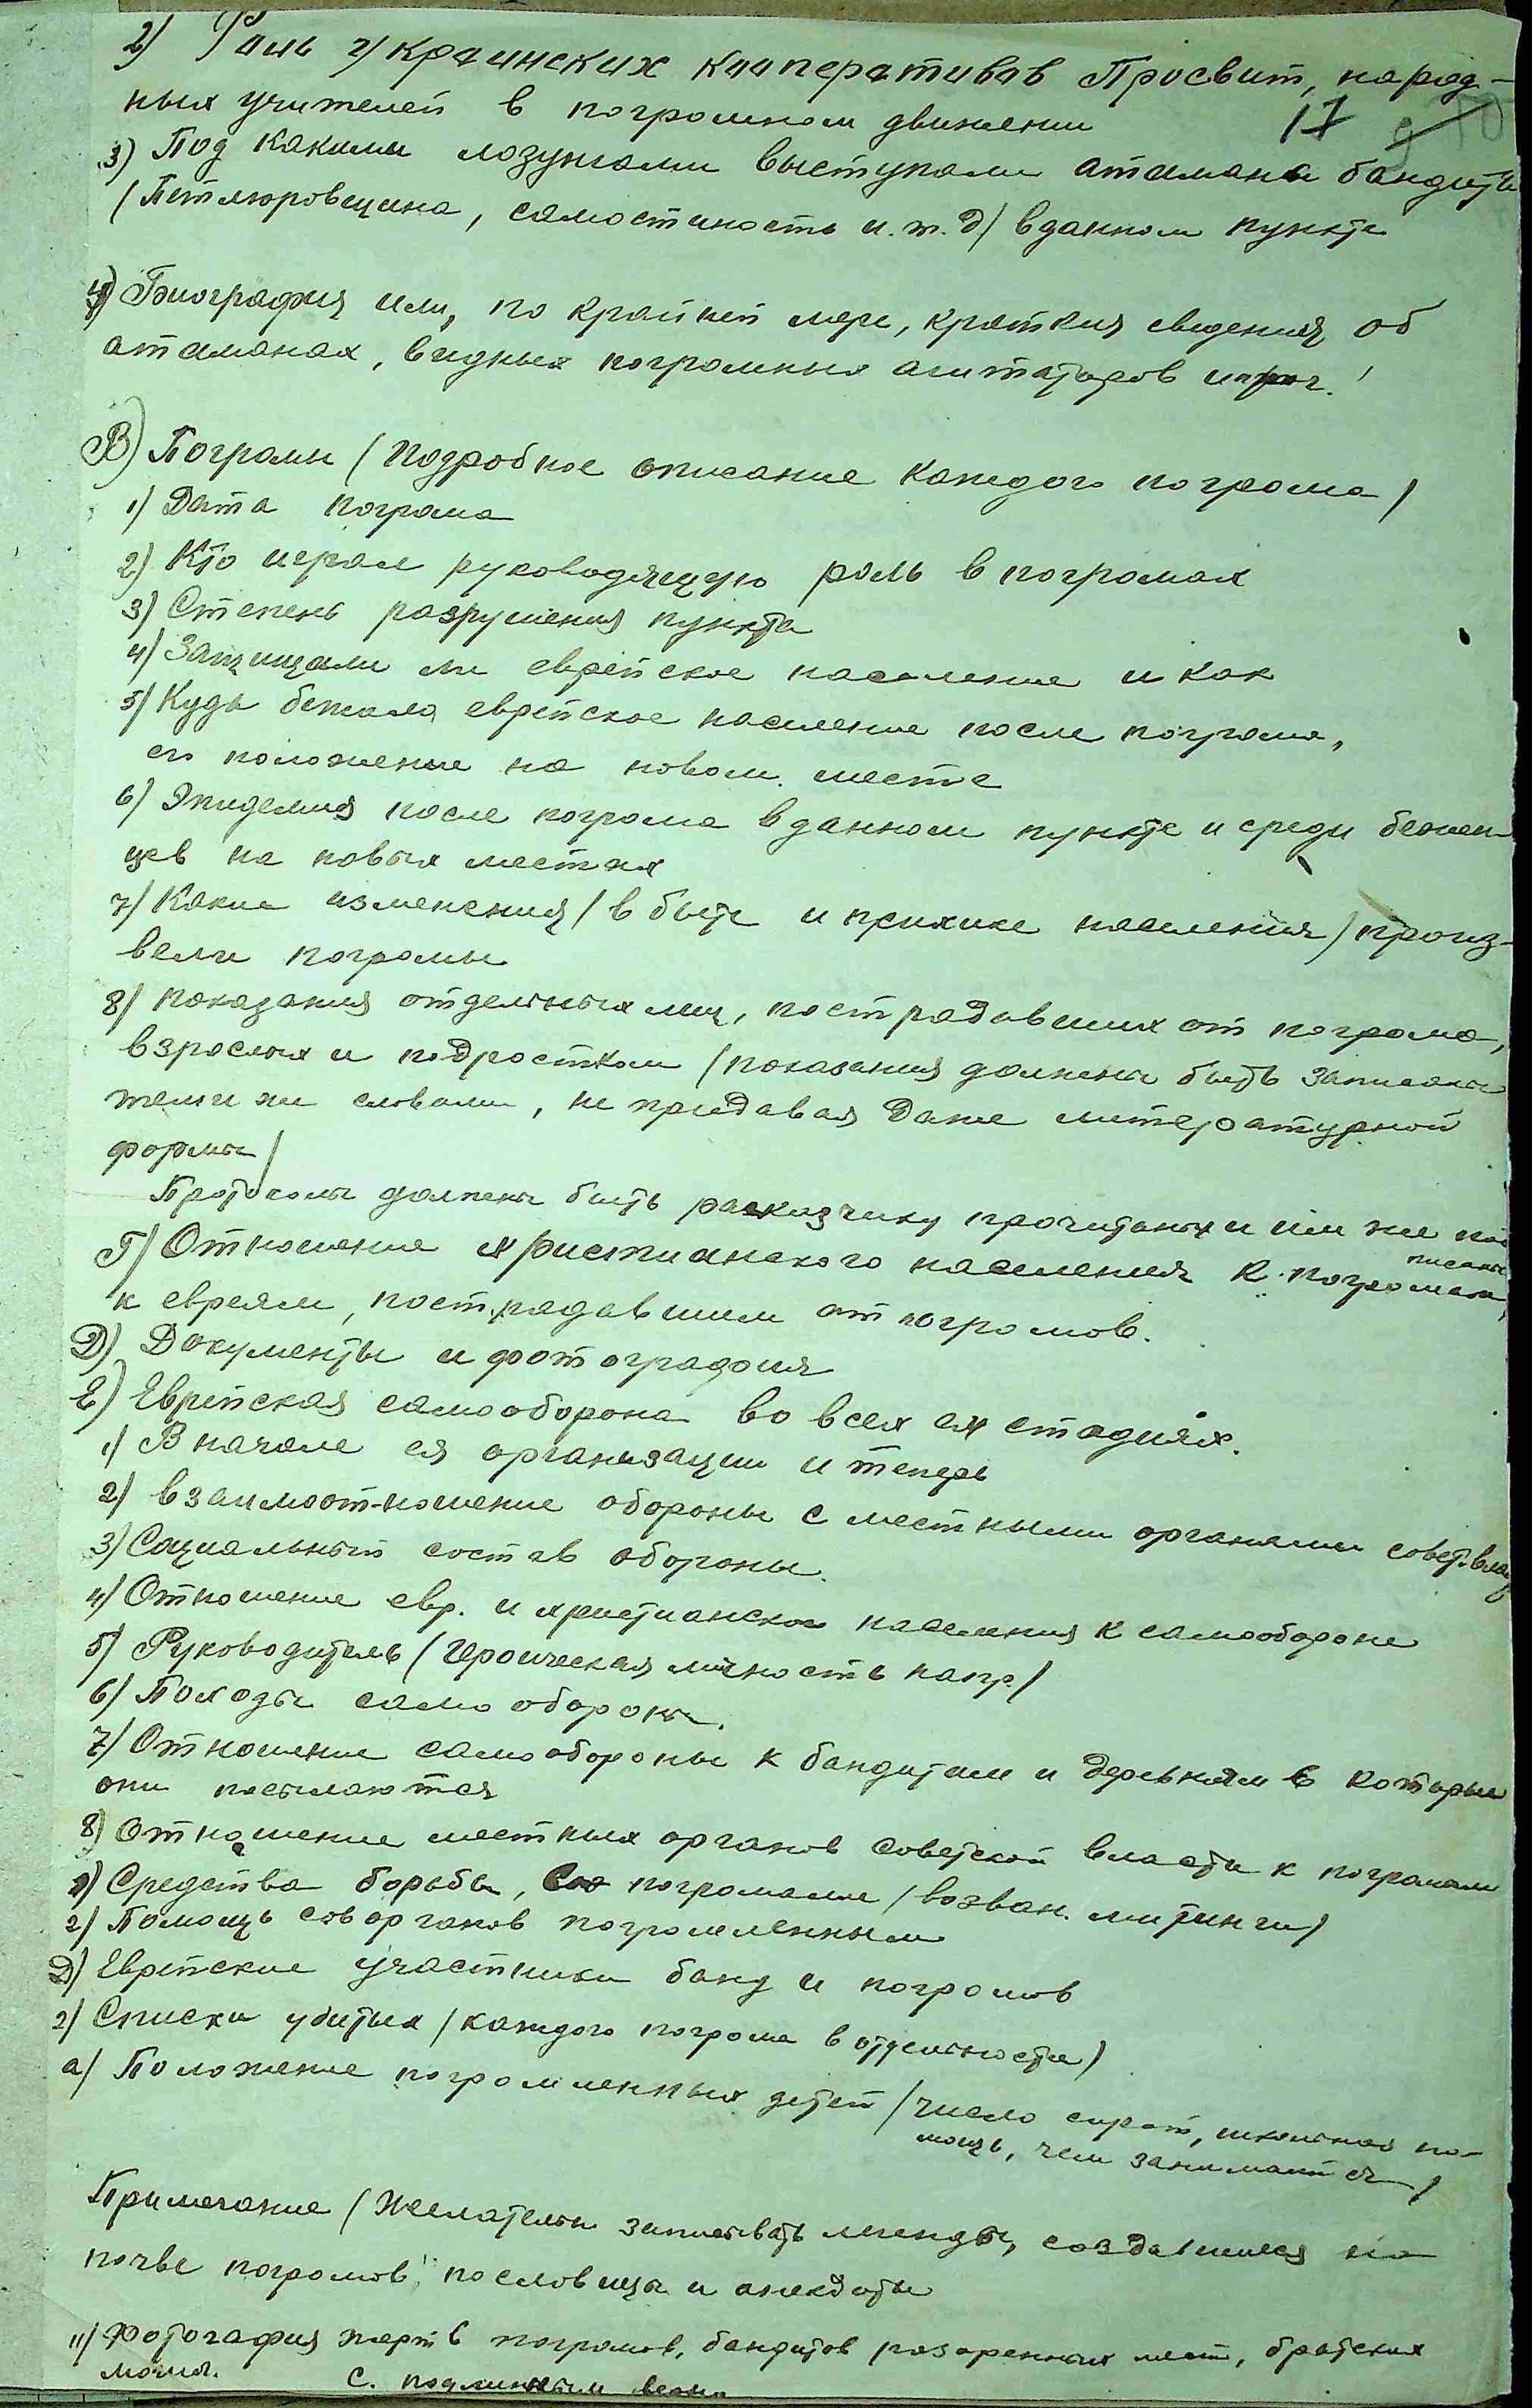 2) Роль Украинских кооперативов Просвит, народ-
ных учителей в погромном движении
17
3) Под какими лозунгами выступали атамана бандиты
(Петлюровщина, самостиность и.т.д) в данном пункте
4) Биография или, по крайней мере, краткия сведения об
атаманах, видных погромных агитаторов и проч.
В) Погромы (Подробное описание каждого погрома)
1) Дата погрома
2) Кто играл руководящую роль в погромах
3) Степень разрушения пункта
4) Защищали ли еврейское население и как
5) Куда бежало еврейское население после погрома,
его положение на новом месте
6) Эпидемия после погрома в данном пункте и среди бежен-
цев на новых местах
7) Какие изменения (в быте и психике населения) произ-
вели погромы
8) показания отдельных лиц, пострадавших от погрома,
взрослых и подростков (показания должны быть записаны
теми же словами, не придавая даже литературной
формы)
Протоколы должны быть расказчику прочитаны и им же под
писаны
Г) Отношение христианского населения к погромам,
к евреям, пострадавшим от погромов.
Д) Документы и фотография
Е) Еврейская самооборона во всех ея стадиях.
1) В начале ея организации и теперь
2) взаимоот-ношение обороны с местными органами совет. влас
3) Социальный состав обороны.
4) Отношение евр. и христианского населения к самообороне
5) Руководитель (Героическая личность напр)
6) Походы самообороны.
7) Отношение самообороны к бандитам и деревням в которые
они посылаются
8) Отношение местных органов советской власти к погромам
1) Средства борьбы, с погромами (возван. митинги)
2) Помощь соворганов погромленным
Д) Еврейские участники банд и погромов
2) Списки убитых (каждого погрома в отдельности)
а) Положение погромленных детей (число сирот, школьная по-
мощь, чем занимаются)
Примечание (Желательно записывать легенды, создавшиеся на
почве погромов, пословицы и анекдоты
11) Фотогафия жертв погромов, бандитов разоренных мест, братских
могил. С. подлинным верно